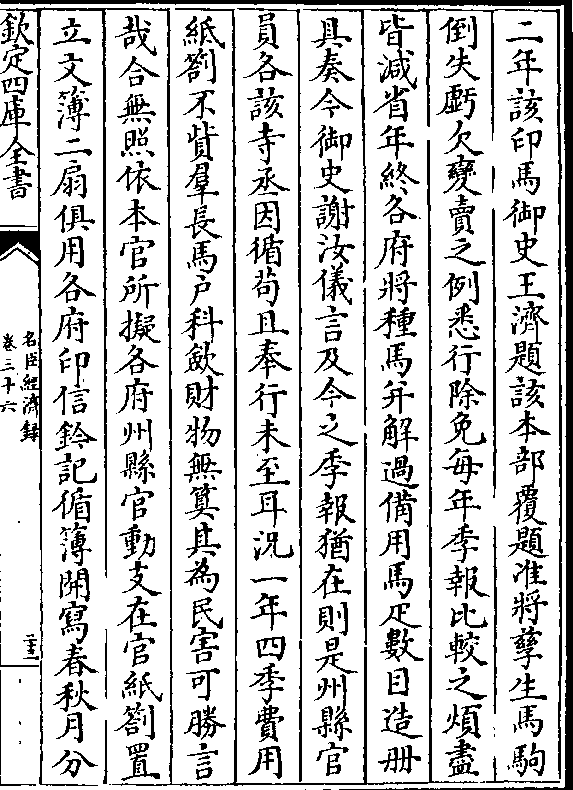 二年該印馬御史王濟題該本部覆題准將孳生馬駒
倒失虧欠變賣之例悉行除免每年季報比較之煩盡
皆減省年終各府將種馬并解過備用馬疋數目造册
具奏今御史謝汝儀言及今之季報猶在則是州縣官
員各該寺丞因循苟且奉行未至耳況一年四季費用
紙劄不貲羣長馬户科歛財物無筭其為民害可勝言
哉合無照依本官所擬各府州縣官動支在官紙劄置
立文簿二扇俱用各府印信鈐記循簿開寫春秋月分
欽定四庫全書
名臣經濟録
卷三十六
二十三